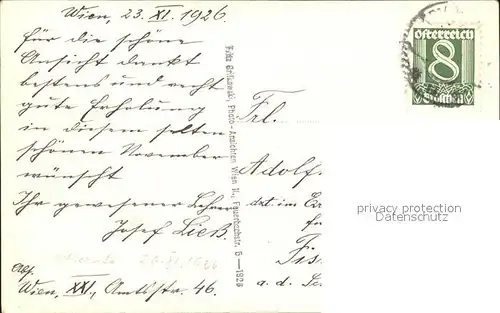 Wien, 23. XI. 1926.
für die schöne
Ansicht dankt
bestens und recht
gute Erholung
in diesem selten
schönen November
wünscht
Ihr gewesener Lehrer
Josef Ließ
Abs.
Wien, XXI., Amtsstr. 46.
Fritz Gritkowski, Photo-Ansichten Wien II., Fugbachstr. 6—1926
österreich
8
Groschen
Frl.
Adolf
dzt. im
Fis
a. d.
privacy protection
Datenschutz